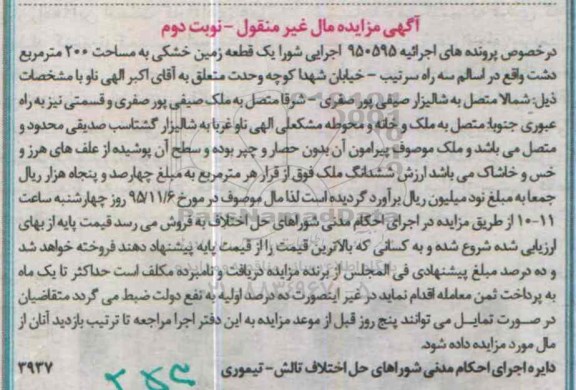 آگهی مزایده مال غیر منقول - نوبت دوم
درخصوص پرونده های اجرائیه ۹۵۰۵۹۵ اجرایی شورا یک قطعه زمین خشکی به مساحت ۲۰۰ مترمربع
دشت واقع در اسالم سه راه سرتیپ - خیابان شهدا کوچه وحدت متعلق به آقای اکبر الهی ناو با مشخصات
ذیل: شمالا متصل به شالیزار صیفی پور صفری - شرقا متصل به ملک صیفی پور صفری و قسمتی نیز به راه
عبوری جنوبا: متصل به ملک و خانه و محوطه مشکعلی الهی ناو غربا به شالیزار گشتاسب صدیقی محدود و
متصل می باشد و ملک موصوف پیرامون آن بدون حصار و چپر بوده و سطح آن پوشیده از علف های هرز و
خس و خاشاک می باشد ارزش ششدانگ ملک فوق از قرار هر مترمربع به مبلغ چهارصد و پنجاه هزار ریال
جمعا به مبلغ نود میلیون ریال برآورد گردیده است لذا مال موصوف در مورخ ۹۵/۱۱/۶ روز چهارشنبه ساعت
۱۱-۱۰ از طریق مزایده در اجرای احکام مدنی شوراهای حل اختلاف به فروش می رسد قیمت پایه از بهای
ارزیابی شده شروع شده و به کسانی که بالاترین قیمت را از قیمت پایه پیشنهاد دهند فروخته خواهد شد
و ده درصد مبلغ پیشنهادی فی المجلس از برنده مزایده دریافت و نامبرده مکلف است حداکثر تا یک ماه
به پرداخت ثمن معامله اقدام نماید در غیر اینصورت ده درصد اولیه به نفع دولت ضبط می گردد متقاضیان
در صورت تمایل می توانند پنج روز قبل از موعد مزایده به این دفتر اجرا مراجعه تا ترتیب بازدید آنان از
مال مورد مزایده داده شود.
دایره اجرای احکام مدنی شوراهای حل اختلاف تالش - تیموری
۳۹۳۷